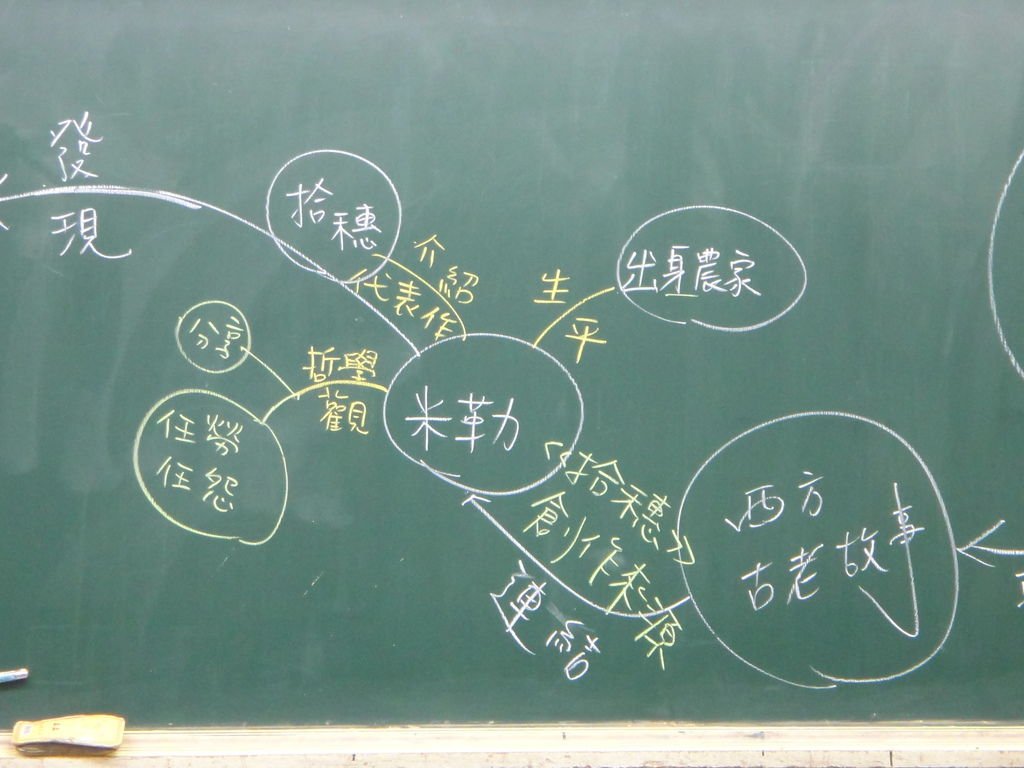 發
現
拾
穗
介紹
代表作
生
平
出身農家
分享
哲學
觀
任勞
任怨
米勒
《拾穗》
創作想源
連結
西方
古老故事